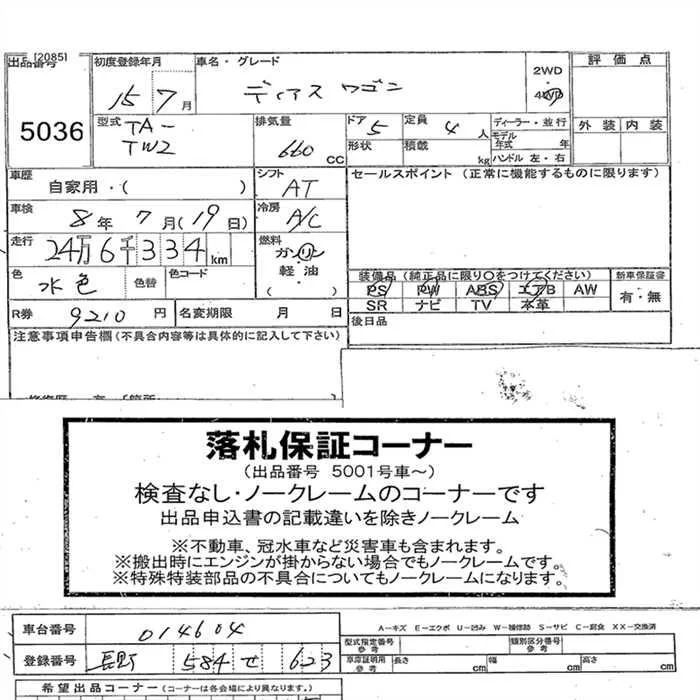 [2085]
出品番号 初度登録年月 車名・グレード 2WD 評価点
15 7月 ディアス ワゴン 4WD
5036 型式 TA- 排気量 ドア 5 定員 4人 ディーラー・並行 外装 内装
TW2 660 CC 形状 積載 kg モデル年式 年
ハンドル 左・右
車歴 自家用・( ) シフト AT セールスポイント (正常に機能するものに限ります)
車検 8年 7月(19日) 冷房 A/C
走行 24万6千334km 燃料 ガソリン
軽・油
・( )
色 水色 色替 色コード 装備品 (純正品に限り○をつけてください) 新車保証書
PS PW ABS エアB AW 有・無
SR ナビ TV 本革
R券 9210円 名変期限 月 日 後日品
注意事項申告欄(不具合内容等は具体的に記入して下さい)
落札保証コーナー
(出品番号 5001号車~)
検査なし・ノークレームのコーナーです
出品申込書の記載違いを除きノークレーム
※不動車、冠水車など災害車も含まれます。
※搬出時にエンジンが掛からない場合でもノークレームです。
※特殊特装部品の不具合についてもノークレームになります。
A-キズ E-エクボ U-凹み W-補修跡 S-サビ C-腐食 XX-交換済
車台番号 014604 型式指定番号参考 類別区分番号参考
登録番号 長野 584 せ 623 車庫証明用参考 長さ cm 幅 cm 高さ cm
希望出品コーナー (コーナーは各会場により異なります。)